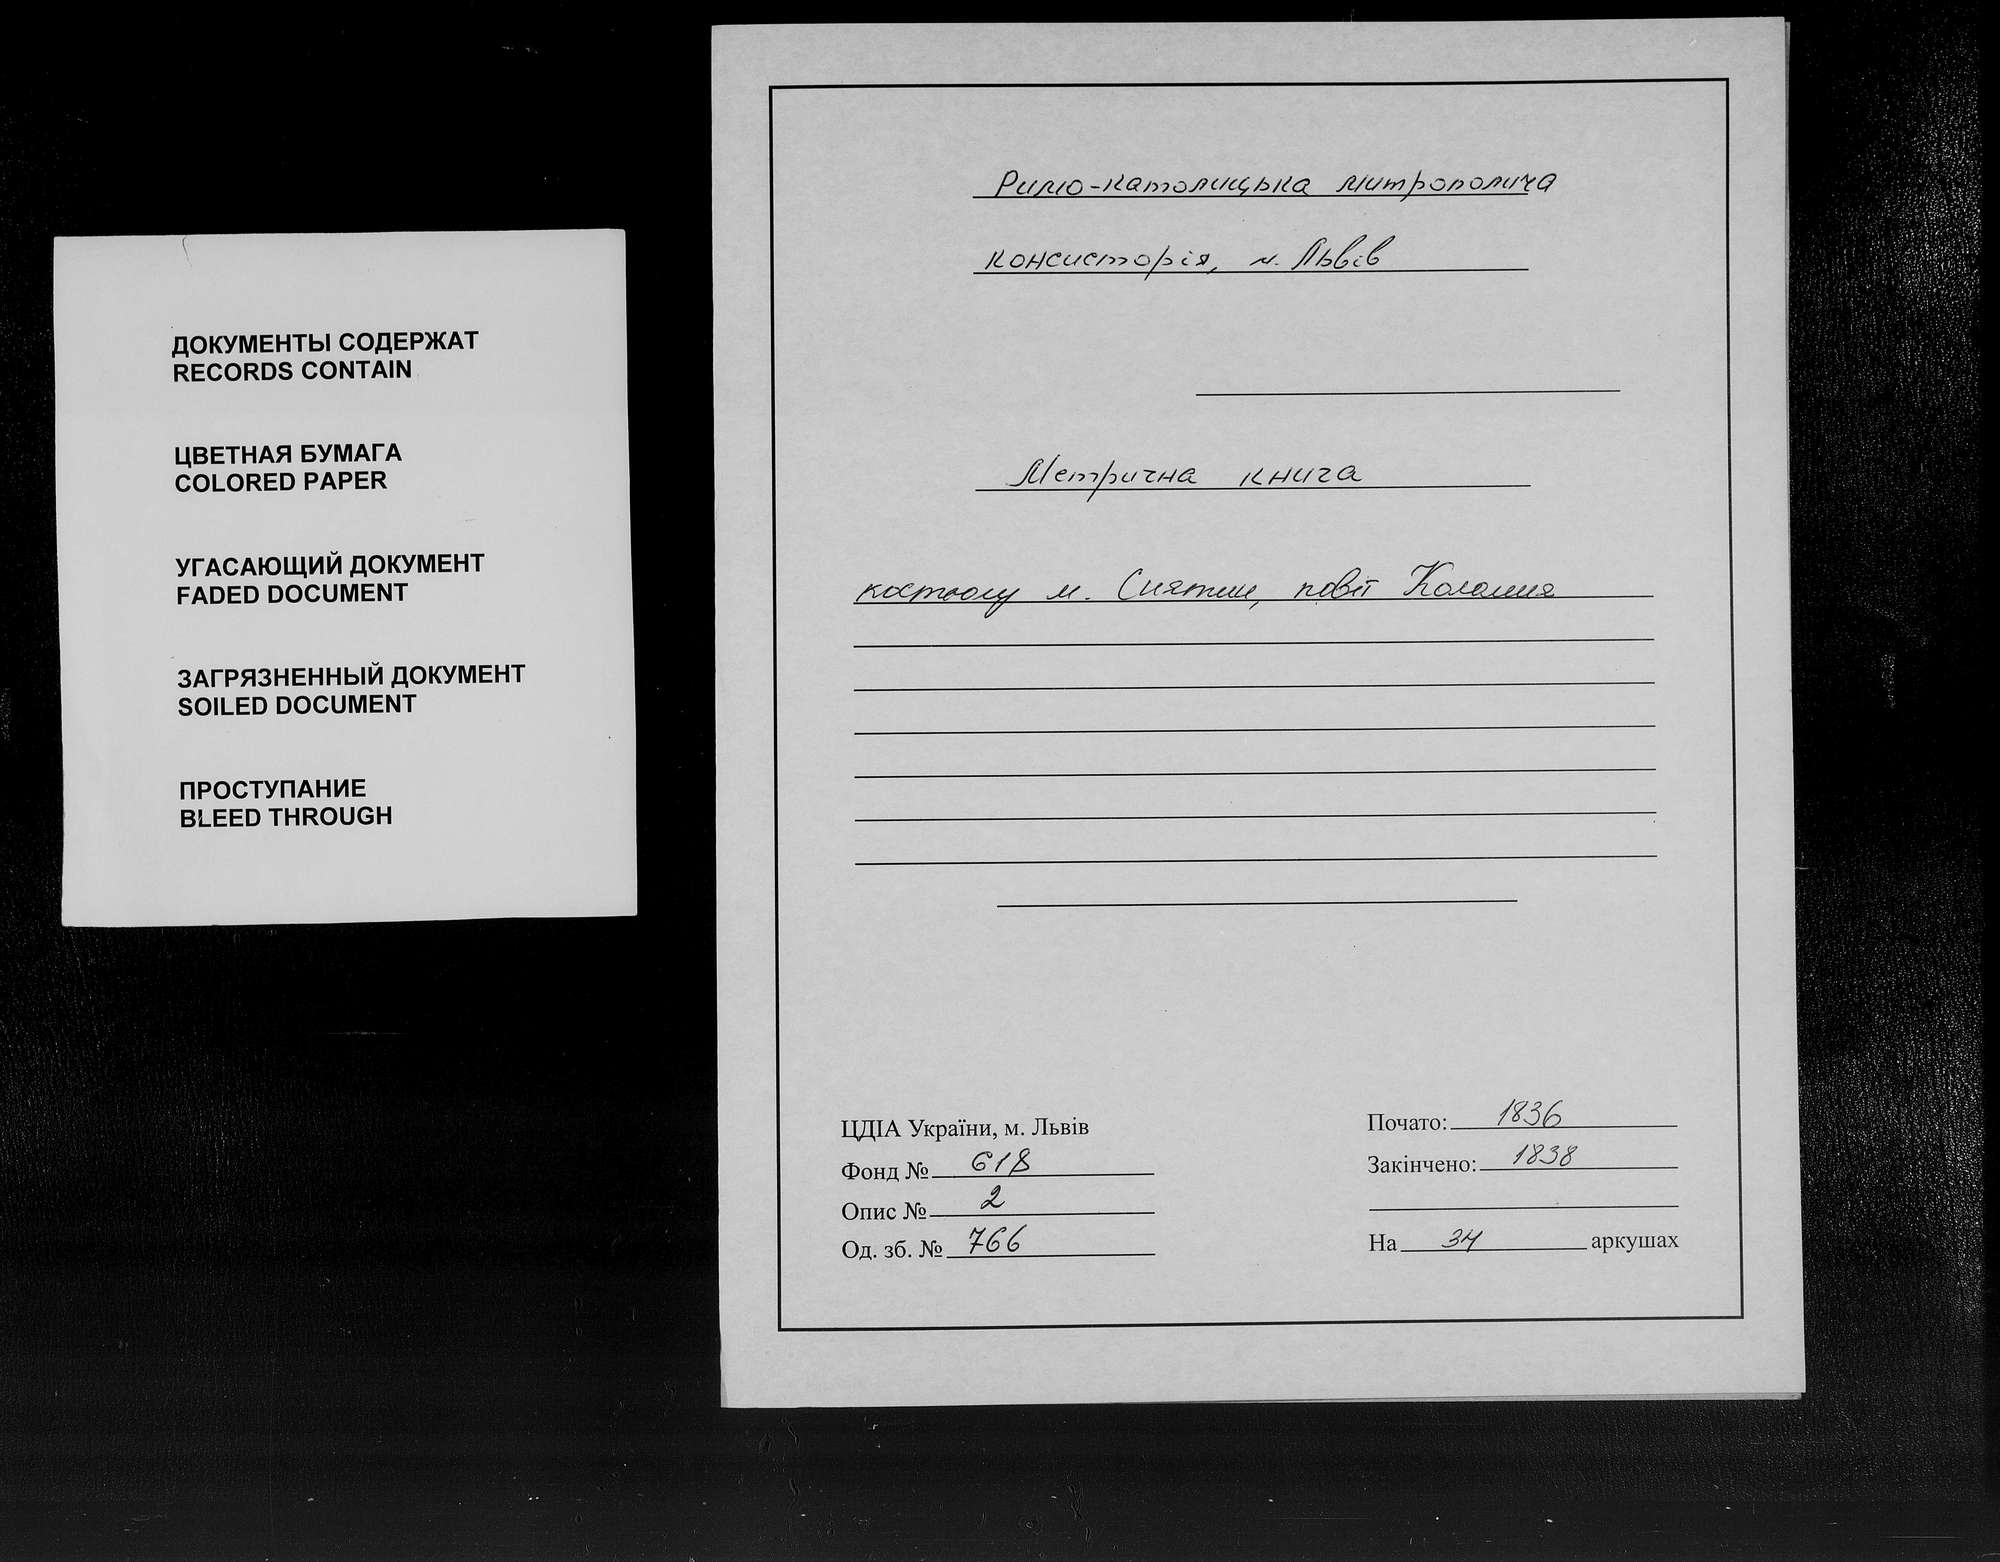 ДОКУМЕНТЫ СОДЕРЖАТ
RECORDS CONTAIN
ЦВЕТНАЯ БУМАГА
COLORED PAPER
УГАСАЮЩИЙ ДОКУМЕНТ
FADED DOCUMENT
ЗАГРЯЗНЕННЫЙ ДОКУМЕНТ
SOILED DOCUMENT
ПРОСТУПАНИЕ
BLEED THROUGH
Римо-католицька митрополича
консисторія, м. Львів
Метрична книга
костьолу м. Снятин, повіт Коломия
ЦДІА України, м. Львів
Фонд № 618
Опис № 2
Од. зб. № 766
Почато: 1836
Закінчено: 1838
На 34 аркушах